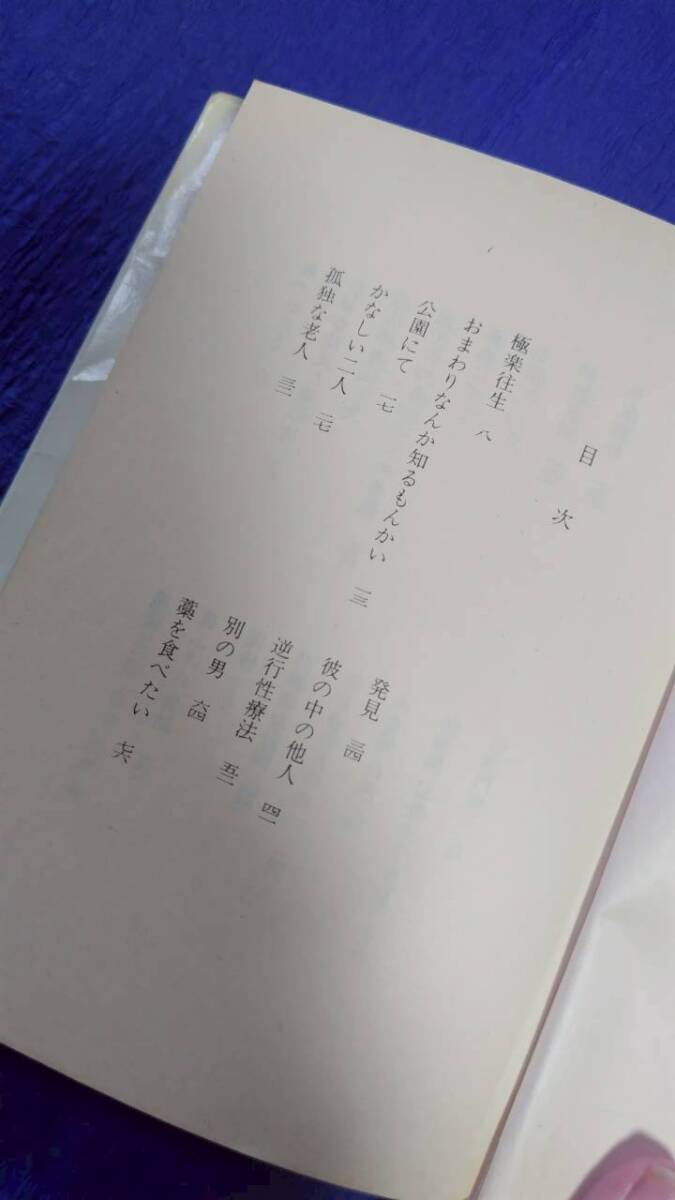 目次
極楽往生 八
おまわりなんか知るもんかい 一三
公園にて 一七
かなしい二人 二七
孤独な老人 三一
発見 三四
彼の中の他人 四一
逆行性療法 五二
別の男 六四
藁を食べたい 七六